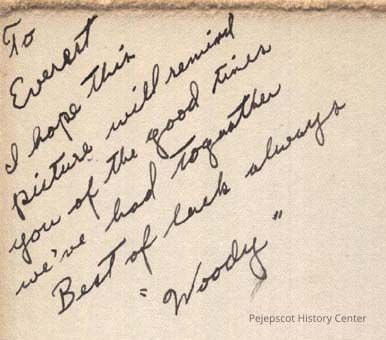 To
Everest
I hope this
picture will remind
you of the good times
we've had togeather
Best of luck always
"Woody"
Pejepscot History Center